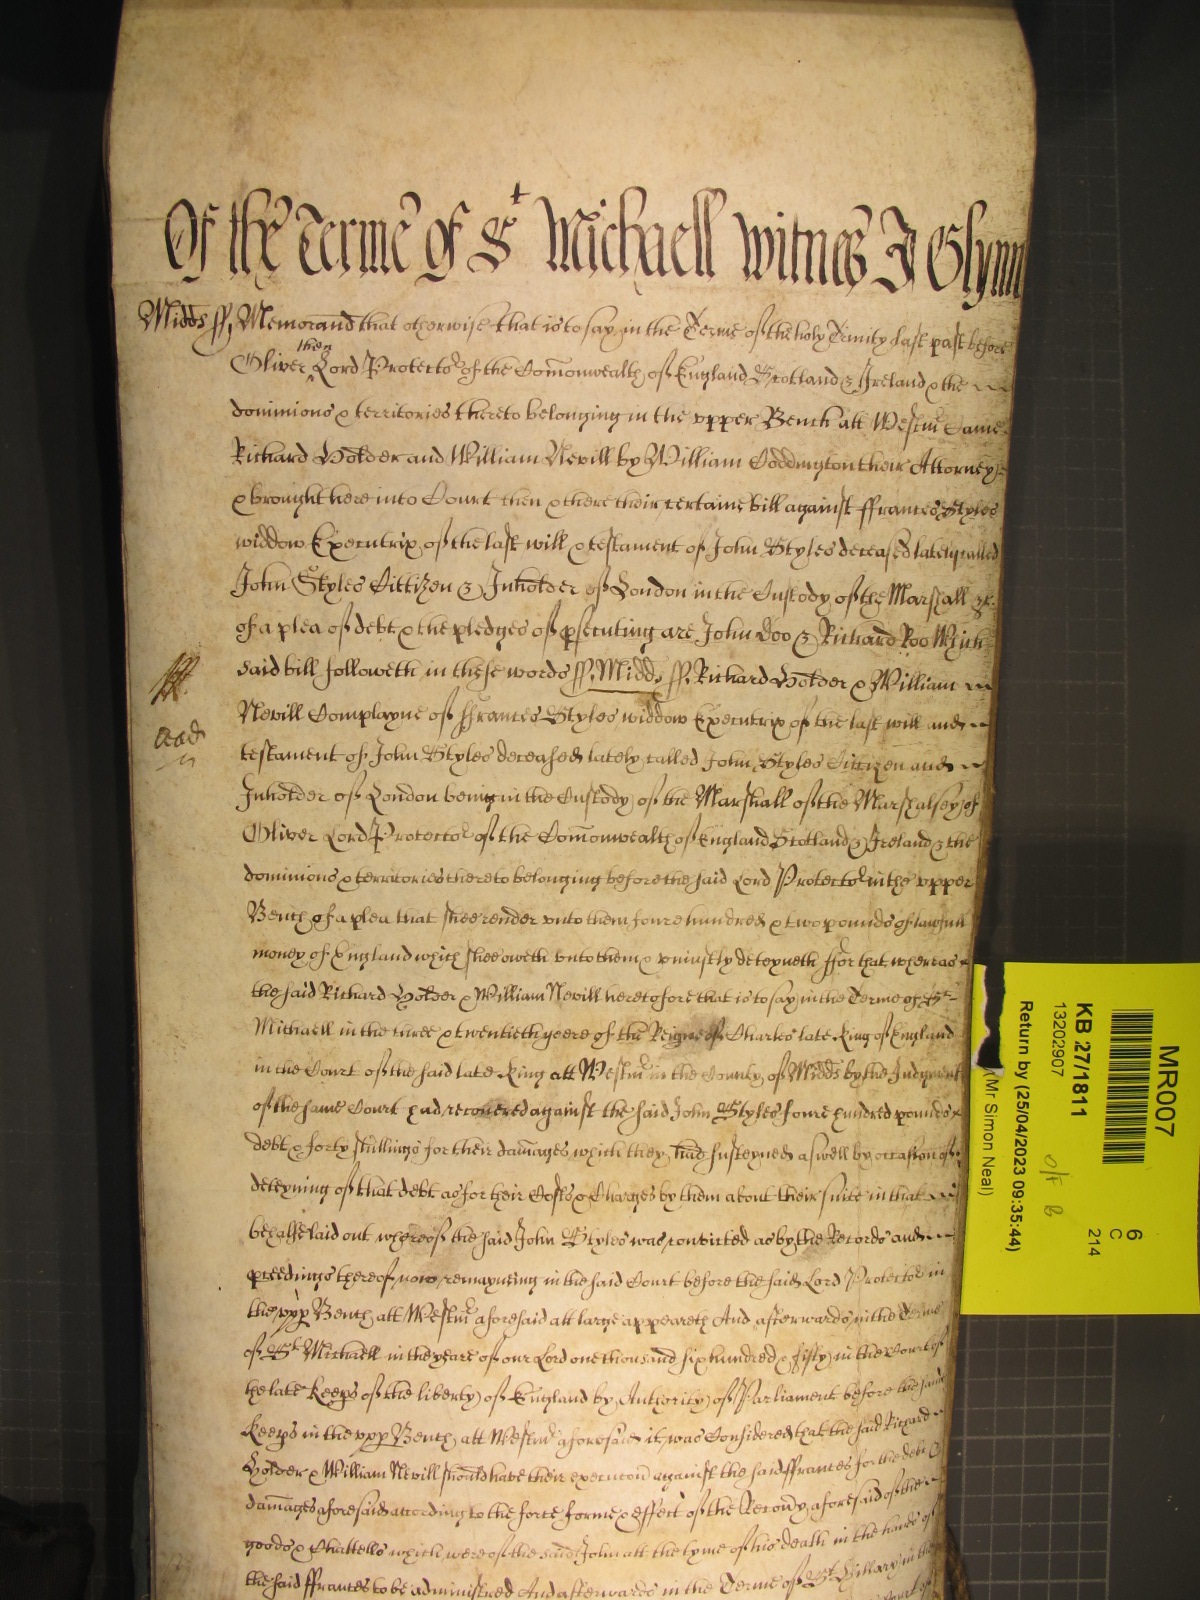 Of the Terme of St Michaell Witnes J Glynn
Midds ss, Memorand that otherwise that is to say in the Terme of the holy Trinity last past before
Oliver then Lord Protector of the Comonwealth of England Scotland & Ireland & the
dominions & territories thereto belonging in the upper Bench att Westmr Came
Richard Holder and William Nevill by William Coddington their Attorney
& brought here into Court then & there their certaine bill against ffrances Styles
widdow Executrix of the last will & testament of John Styles deceased lately called
John Styles Cittizen & Inholder of London in the Custody of the Marshall &c
of a plea of debt & the pledges of psecuting are John Doo & Richard Roo Which
said bill followeth in these words ss, Midds ss, Richard Holder & William
Nevill Complayne of ffrances Styles widdow Executrix of the last will and
testament of John Styles deceased lately called John Styles Cittizen and
Inholder of London being in the Custody of the Marshall of the Marshalsey of
Oliver Lord Protector of the Comonwealth of England Scotland & Ireland & the
dominions & territories thereto belonging before the said Lord Protector in the upper
Bench of a plea that shee render unto them foure hundred & two pounds of lawfull
money of England which shee oweth unto them & uniustly deteyneth ffor that whereas
the said Richard Holder & William Nevill heretofore that is to say in the Terme of St
Michaell in the three & twentieth yeere of the Reigne of Charles late King of England
in the Court of the said late King att Westmr in the County of Midds by the Judgment
of the same Court had recovered against the said John Styles foure hundred pounds
debt & forty shillings for their damages which they had susteyned aswell by occasion of
deteyning of that debt as for their Costs & Charges by them about their suite in that
behalfe laid out whereof the said John Styles was convicted as by the Records and
pceedings thereof now remayneing in the said Court before the said Lord Protector in
the upp Bench att Westmr aforesaid att large appeareth And afterwards in the Terme
of St Michaell in the yeare of our Lord one thousand six hundred & fifty in the Court of
the late Keeps of the liberty of England by Authority of Parliament before the said
Keeps in the upp Bench att Westmr aforesaid it was Considered that the said Richard
Holder & William Nevill should have their execucon against the said ffrances for the debt &
damages aforesaid according to the force forme & effect of the Recovy aforesaid of the
goods & Chattells which were of the said John att the tyme of his death in the hands of
the said ffrances to be administred And afterwards in the Terme of St Hillary in the
MR007
6
C
214
KB 27/1811
13202907
Return by (25/04/2023 09:35:44)
(Mr Simon Neal)